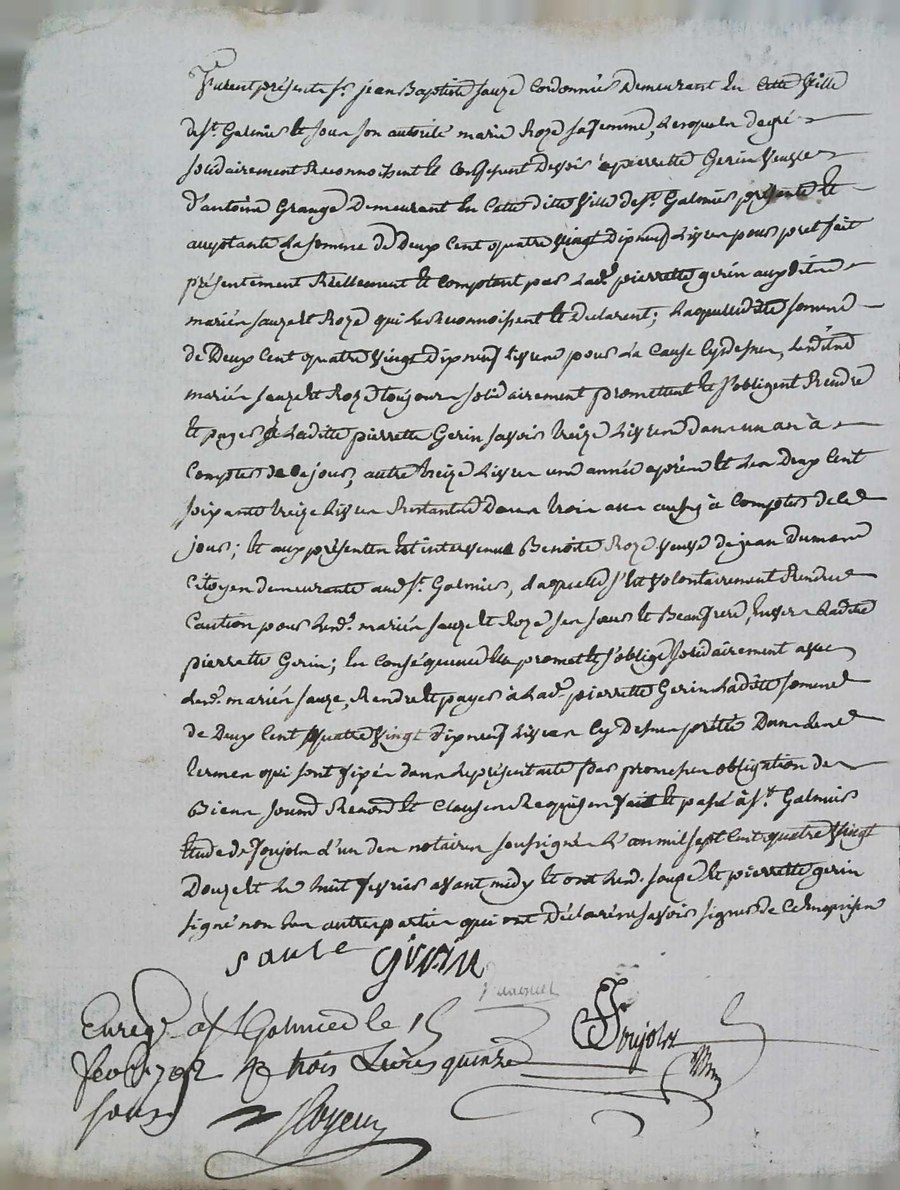 Furent présents Sr. jean Baptiste sauze Cordonnier Demeurant En Cette Ville
de St. Galmier Et sous son autorité marie Roze sa femme, Lesquels de gré
solidairement Reconnoissent Et Confessent Devoir à pierrette Gerin Veuve
d'antoine Grange Demeurant En Cette ditte Ville de St. Galmier présente Et
acceptante La somme de Deux Cent quatre Vingt dix neuf Livres pour pret fait
présentement Réellement Et Comptant par Lade. pierrette gerin auxdits
mariés sauze Et Roze qui Le Reconnoissent Et Declarent; Laquelle ditte somme
de Deux Cent quatre Vingt dix neuf Livres pour La Cause Cy dessus, Lesdits
mariés sauze Et Roze toujours solidairement promettent Et s'obligent Rendre
Et payer à Laditte pierrette Gerin savoir treize Livres dans un an à
Compter de Ce jour, autre treize Livres une année après Et Les Deux Cent
soixante treize Livres Restantes Dans trois ans aussy à Compter de Ce
jour; Et aux présentes Est intervenue Benoite Roze Veuve de jean dumas
Citoyenne demeurante aud. St. Galmier, Laquelle s'Est Volontairement Rendue
Caution pour Lesd. mariés sauze Et Roze ses sœur Et Beaufrere, Envers Laditte
pierrette Gerin; En Conséquence Elle promet Et s'oblige solidairement avec
Lesd. mariés sauze, Rendre Et payer à Lade. pierrette Gerin Laditte somme
de Deux Cent quatre Vingt dix neuf Livres Cy dessus prêtée Dans Les
termes qui sont fixés dans Les présentes par promesses obligation de
Biens soumis Renon Et Clauses Requises fait Et passé à St. Galmier
Etude de Joujoln d'un des notaires soussignés L'an mil sept Cent quatre Vingt
Douze Et Le huit fevrier avant midy Et ont Led. sauze Et pierrette gerin
signé non Les autres parties qui ont Déclaré ne savoir signer de Ce Enquises
sauze Girin
Enregé. à St Galmier le 15
fevr 1792 R trois Livres quinze
sous